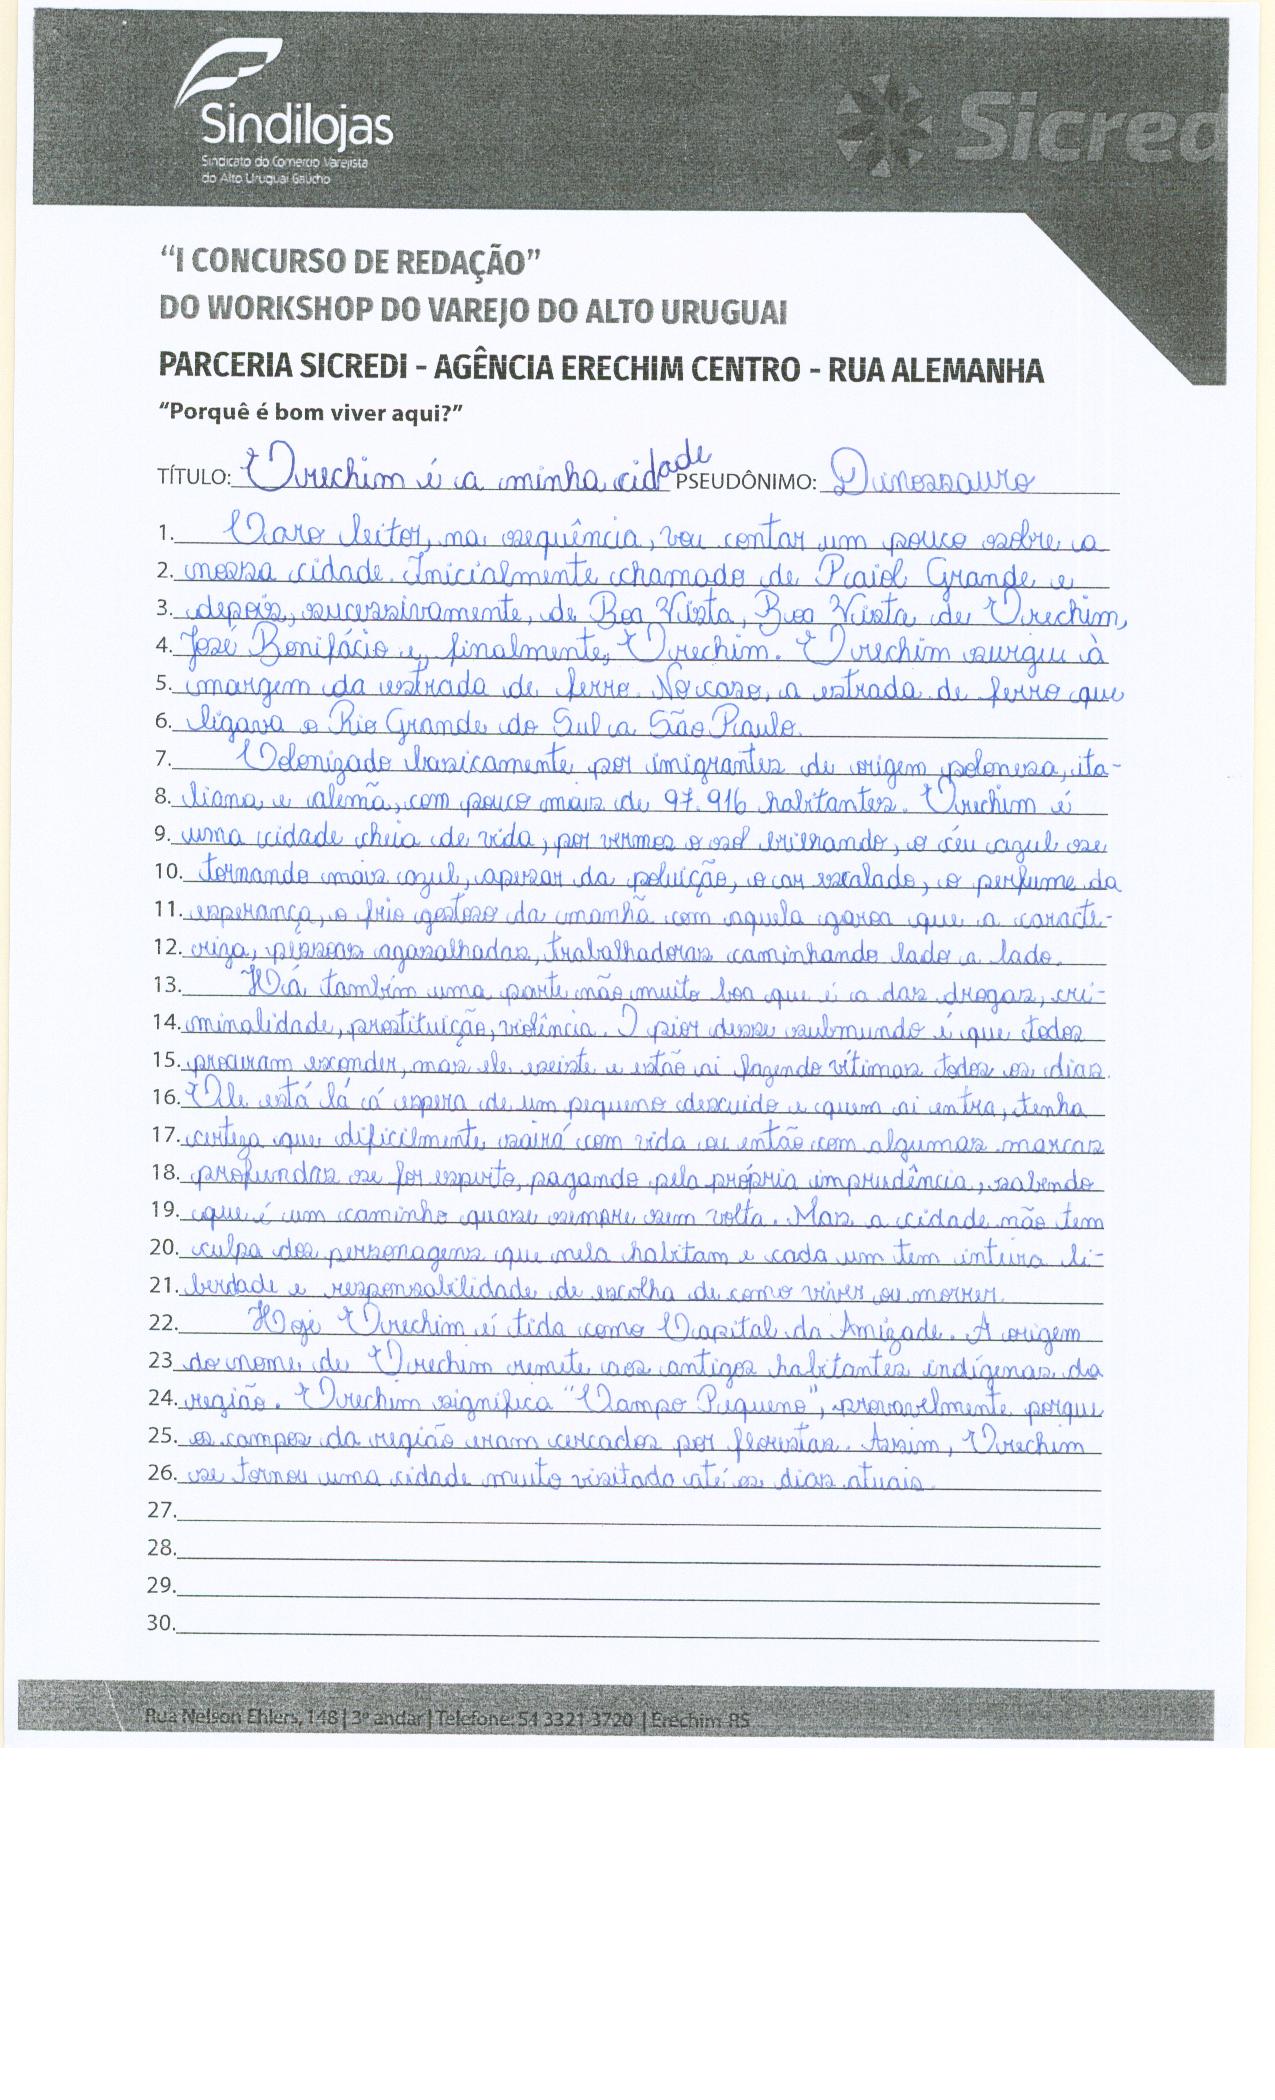 Sindilojas
Sindicato do Comercio Varejista
do Alto Uruguai Gaúcho
Sicred
“I CONCURSO DE REDAÇÃO”
DO WORKSHOP DO VAREJO DO ALTO URUGUAI
PARCERIA SICREDI - AGÊNCIA ERECHIM CENTRO - RUA ALEMANHA
“Porquê é bom viver aqui?”
TÍTULO: Erechim é a minha cidade PSEUDÔNIMO: Dinossauro
1. Caro leitor, na sequência, vou contar um pouco sobre a
2. nossa cidade. Inicialmente chamado de Paiol Grande e
3. depois, sucessivamente, de Boa Vista, Boa Vista de Erechim,
4. José Bonifácio e, finalmente, Erechim. Erechim surgiu à
5. margem da estrada de ferro. No caso, a estrada de ferro que
6. ligava o Rio Grande do Sul a São Paulo.
7. Colonizado basicamente por imigrantes de origem polonesa, ita-
8. liana e alemã, com pouco mais de 97.916 habitantes. Erechim é
9. uma cidade cheia de vida, por vermos o sol brilhando, o céu azul se
10. tornando mais azul, apesar da poluição, o car escalado, o perfume da
11. esperança, o frio gostoso da manhã com aquela garoa que a caracte-
12. riza, pessoas agasalhadas, trabalhadoras caminhando lado a lado.
13. Há também uma parte não muito boa que é a das drogas, cri-
14. minalidade, prostituição, violência. O pior desse submundo é que todos
15. procuram esconder, mas ele existe e estão ai fazendo vítimas todos os dias.
16. Ele está lá á espera de um pequeno descuido e quem ai entra, tenha
17. certeza que dificilmente sairá com vida ou então com algumas marcas
18. profundas se for esperto, pagando pela própria imprudência, sabendo
19. que é um caminho quase sempre sem volta. Mas a cidade não tem
20. culpa dos personagens que nela habitam e cada um tem inteira li-
21. berdade e responsabilidade de escolha de como viver ou morrer.
22. Hoje Erechim é tida como Capital da Amizade. A origem
23. do nome de Erechim remete aos antigos habitantes indígenas da
24. região. Erechim significa "Campo Pequeno", provavelmente porque
25. os campos da região eram cercados por florestas. Assim, Erechim
26. se tornou uma cidade muito visitada até os dias atuais.
27.
28.
29.
30.
Rua Nelson Ehlers, 148 | 3º andar | Telefone: 54 3321-3720 | Erechim-RS